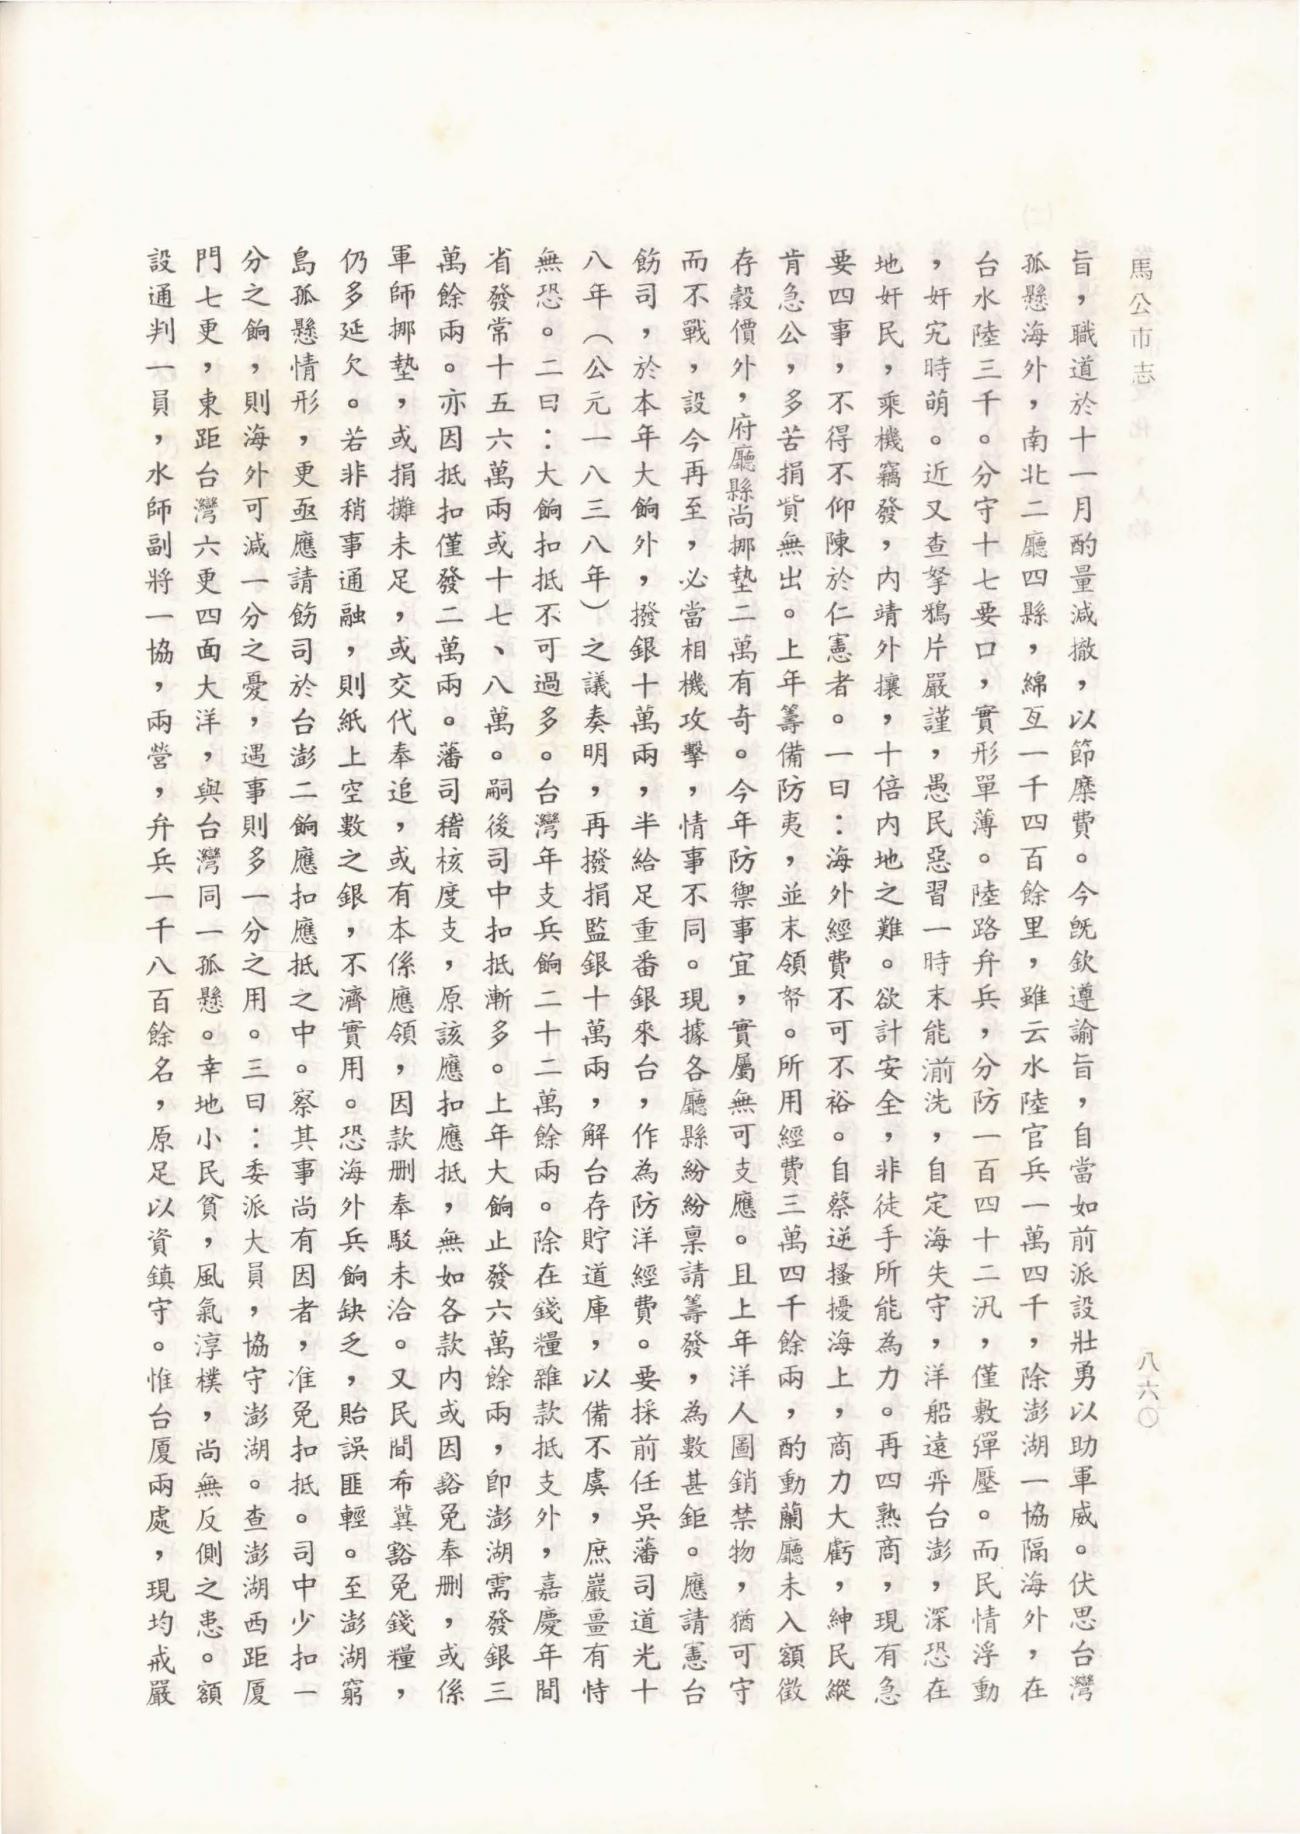 馬公市志
八六〇
旨，職道於十一月酌量減撤，以節糜費。今既欽遵諭旨，自當如前派設壯勇以助軍威。伏思台灣
孤懸海外，南北二廳四縣，綿亙一千四百餘里，雖云水陸官兵一萬四千，除澎湖一協隔海外，在
台水陸三千。分守十七要口，實形單薄。陸路弁兵，分防一百四十二汛，僅敷彈壓。而民情浮動
，奸宄時萌。近又查拏鴉片嚴謹，愚民惡習一時未能湔洗，自定海失守，洋船遠弈台澎，深恐在
地奸民，乘機竊發，內靖外攘，十倍內地之難。欲計安全，非徒手所能為力。再四熟商，現有急
要四事，不得不仰陳於仁憲者。一曰：海外經費不可不裕。自蔡逆搔擾海上，商力大虧，紳民縱
肯急公，多苦捐貲無出。上年籌備防夷，並未領帑。所用經費三萬四千餘兩，酌動蘭廳未入額徵
存穀價外，府廳縣尚挪墊二萬有奇。今年防禦事宜，實屬無可支應。且上年洋人圖銷禁物，猶可守
而不戰，設今再至，必當相機攻擊，情事不同。現據各廳縣紛紛稟請籌發，為數甚鉅。應請憲台
飭司，於本年大餉外，撥銀十萬兩，半給足重番銀來台，作為防洋經費。要採前任吳藩司道光十
八年（公元一八三八年）之議奏明，再撥捐監銀十萬兩，解台存貯道庫，以備不虞，庶巖畺有恃
無恐。二曰：大餉扣抵不可過多。台灣年支兵餉二十二萬餘兩。除在錢糧雜款抵支外，嘉慶年間
省發常十五六萬兩或十七、八萬。嗣後司中扣抵漸多。上年大餉止發六萬餘兩，即澎湖需發銀三
萬餘兩。亦因抵扣僅發二萬兩。藩司稽核度支，原該應扣應抵，無如各款內或因豁免奉刪，或係
軍師挪墊，或捐攤未足，或交代奉追，或有本係應領，因款刪奉駁未洽。又民間希冀豁免錢糧，
仍多延欠。若非稍事通融，則紙上空數之銀，不濟實用。恐海外兵餉缺乏，貽誤匪輕。至澎湖窮
島孤懸情形，更亟應請飭司於台澎二餉應扣應抵之中。察其事尚有因者，准免扣抵。司中少扣一
分之餉，則海外可減一分之憂，遇事則多一分之用。三曰：委派大員，協守澎湖。查澎湖西距厦
門七更，東距台灣六更四面大洋，與台灣同一孤懸。幸地小民貧，風氣淳樸，尚無反側之患。額
設通判一員，水師副將一協，兩營，弁兵一千八百餘名，原足以資鎮守。惟台厦兩處，現均戒嚴